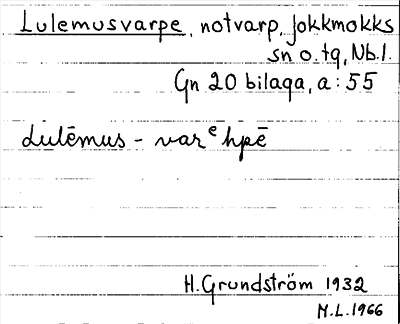 Lulemusvarpe, notvarp, Jokkmokks
sn o. tg, Nb.l.
Gn 20 bilaga, a: 55
Lulēmus - varᵉhpē
H. Grundström 1932
M.L. 1966